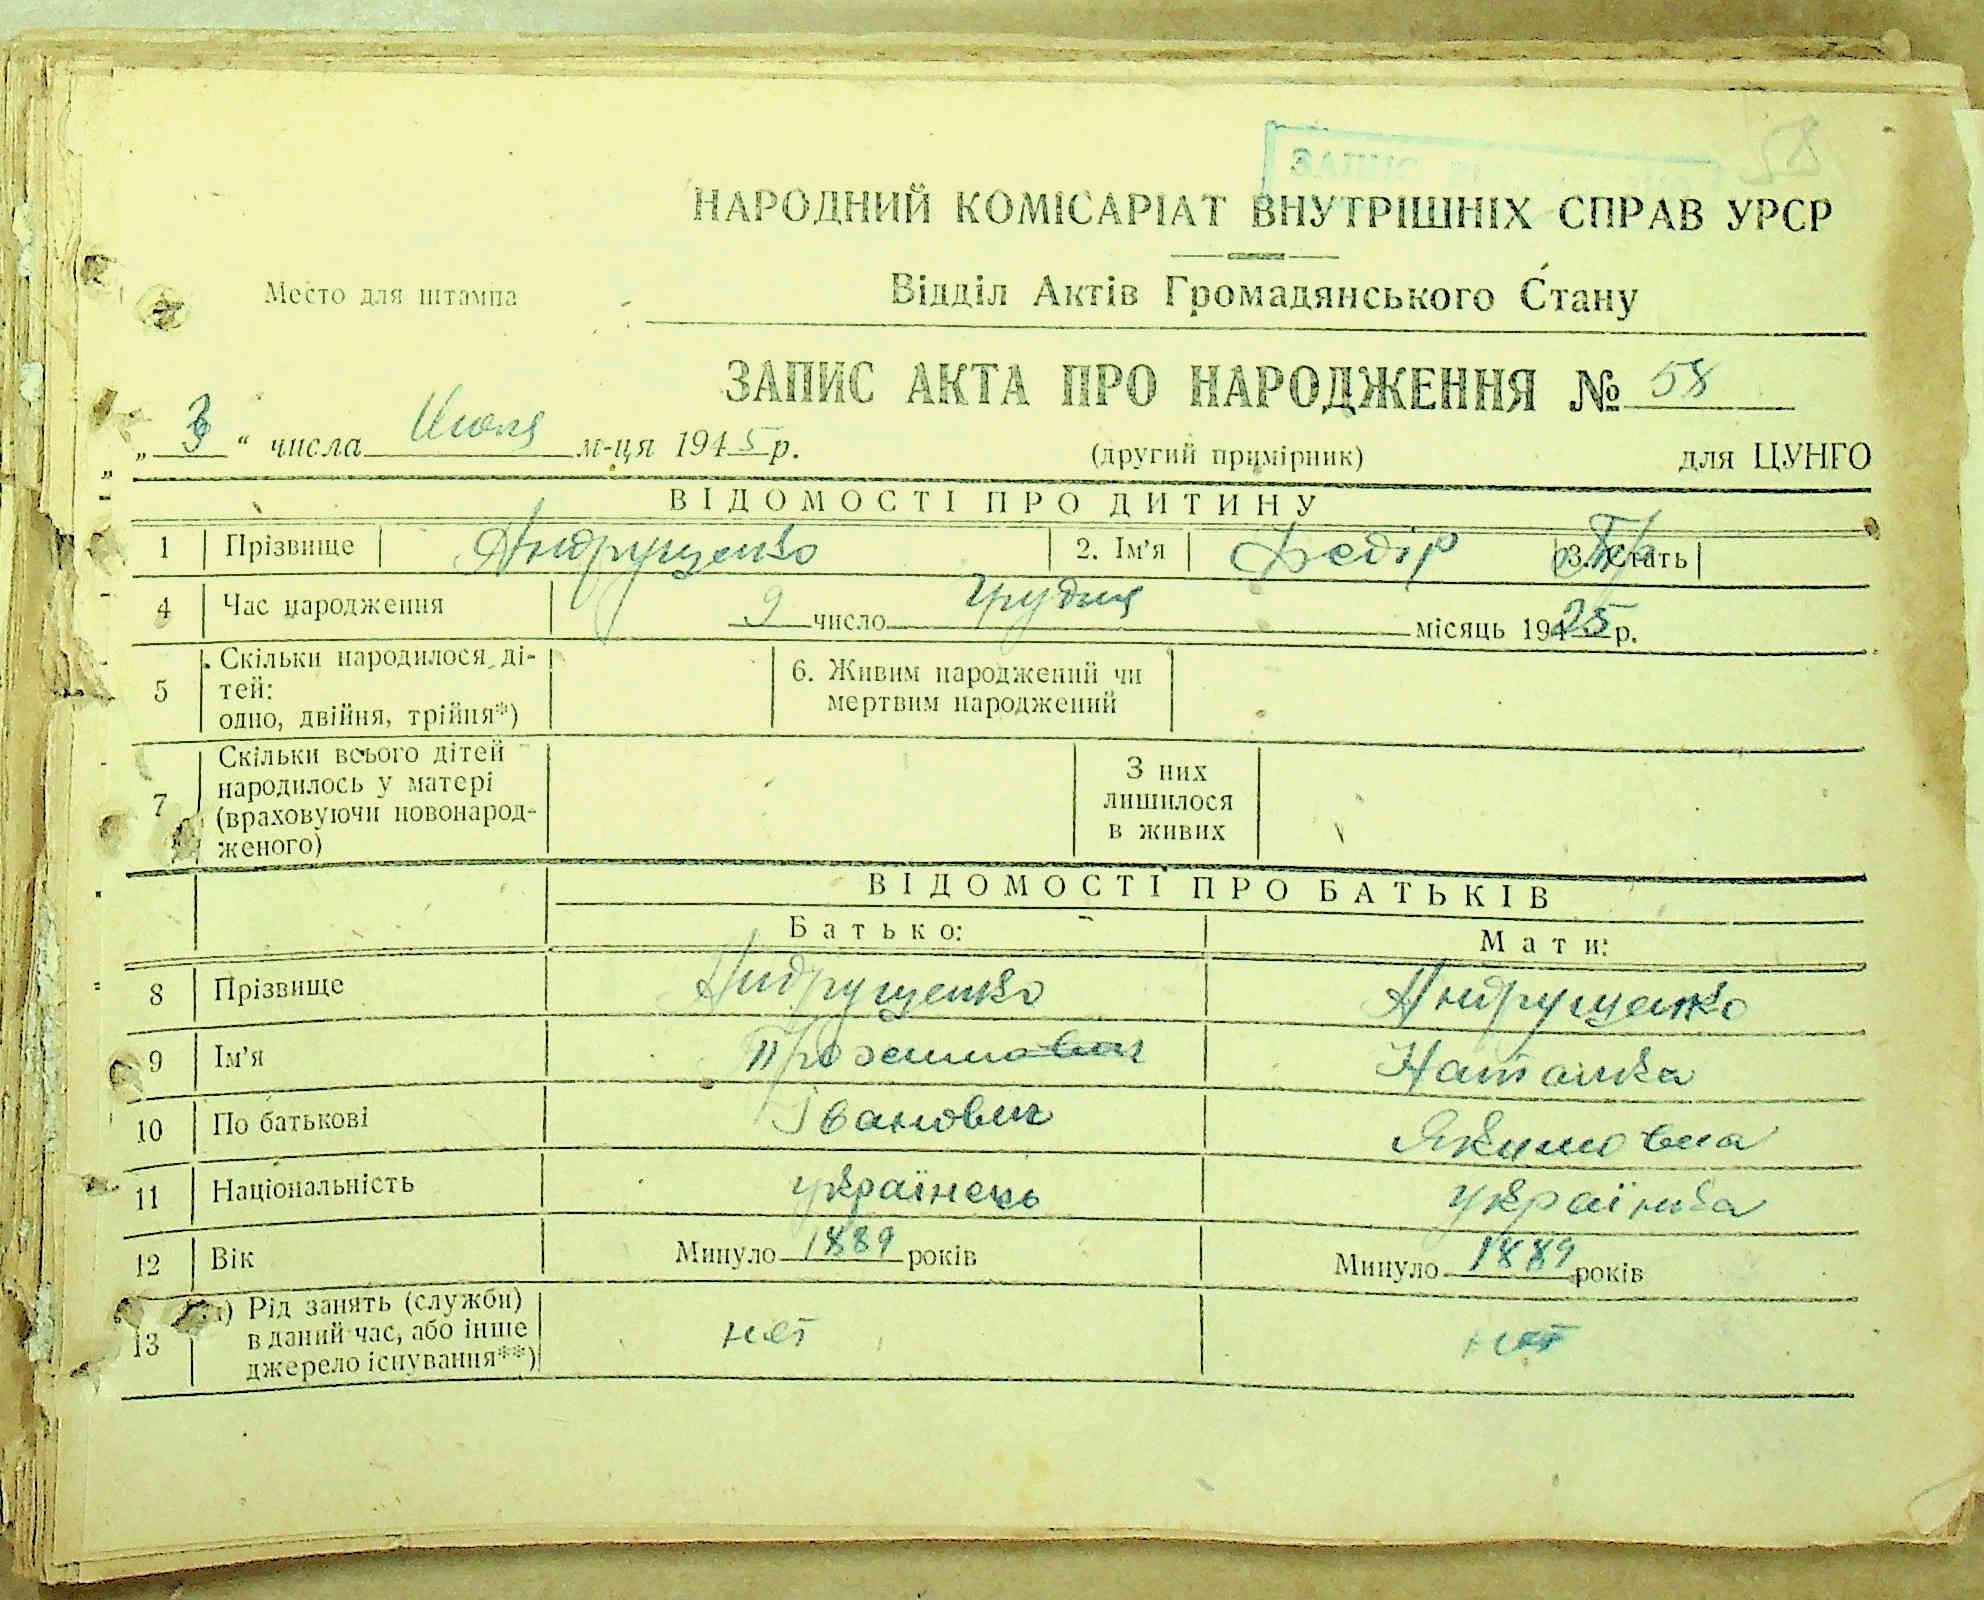 58
ЗАПИС
НАРОДНИЙ КОМІСАРІАТ ВНУТРІШНІХ СПРАВ УРСР
Место для штампа
Відділ Актів Громадянського Стану
ЗАПИС АКТА ПРО НАРОДЖЕННЯ № 58
„ 3 “ числа Июля м-ця 1945 р. (другий примірник) для ЦУНГО
ВІДОМОСТІ ПРО ДИТИНУ
1 Прізвище Андрущенко 2. Ім’я Федір 3. Стать
4 Час народження 9 число Грудня місяць 1925 р.
5 Скільки народилося ді-
тей:
одно, двійня, трійня*)
6. Живим народжений чи
мертвим народжений
7 Скільки всього дітей
народилось у матері
(враховуючи новонарод-
женого)
З них
лишилося
в живих
ВІДОМОСТІ ПРО БАТЬКІВ
Батько: Мати:
8 Прізвище Андрущенко Андрущенко
9 Ім’я Наталка
10 По батькові Іванович Якимовна
11 Національність українець українка
12 Вік Минуло 1889 років Минуло 1889 років
13 а) Рід занять (служби)
в даний час, або інше
джерело існування**)
нет нет